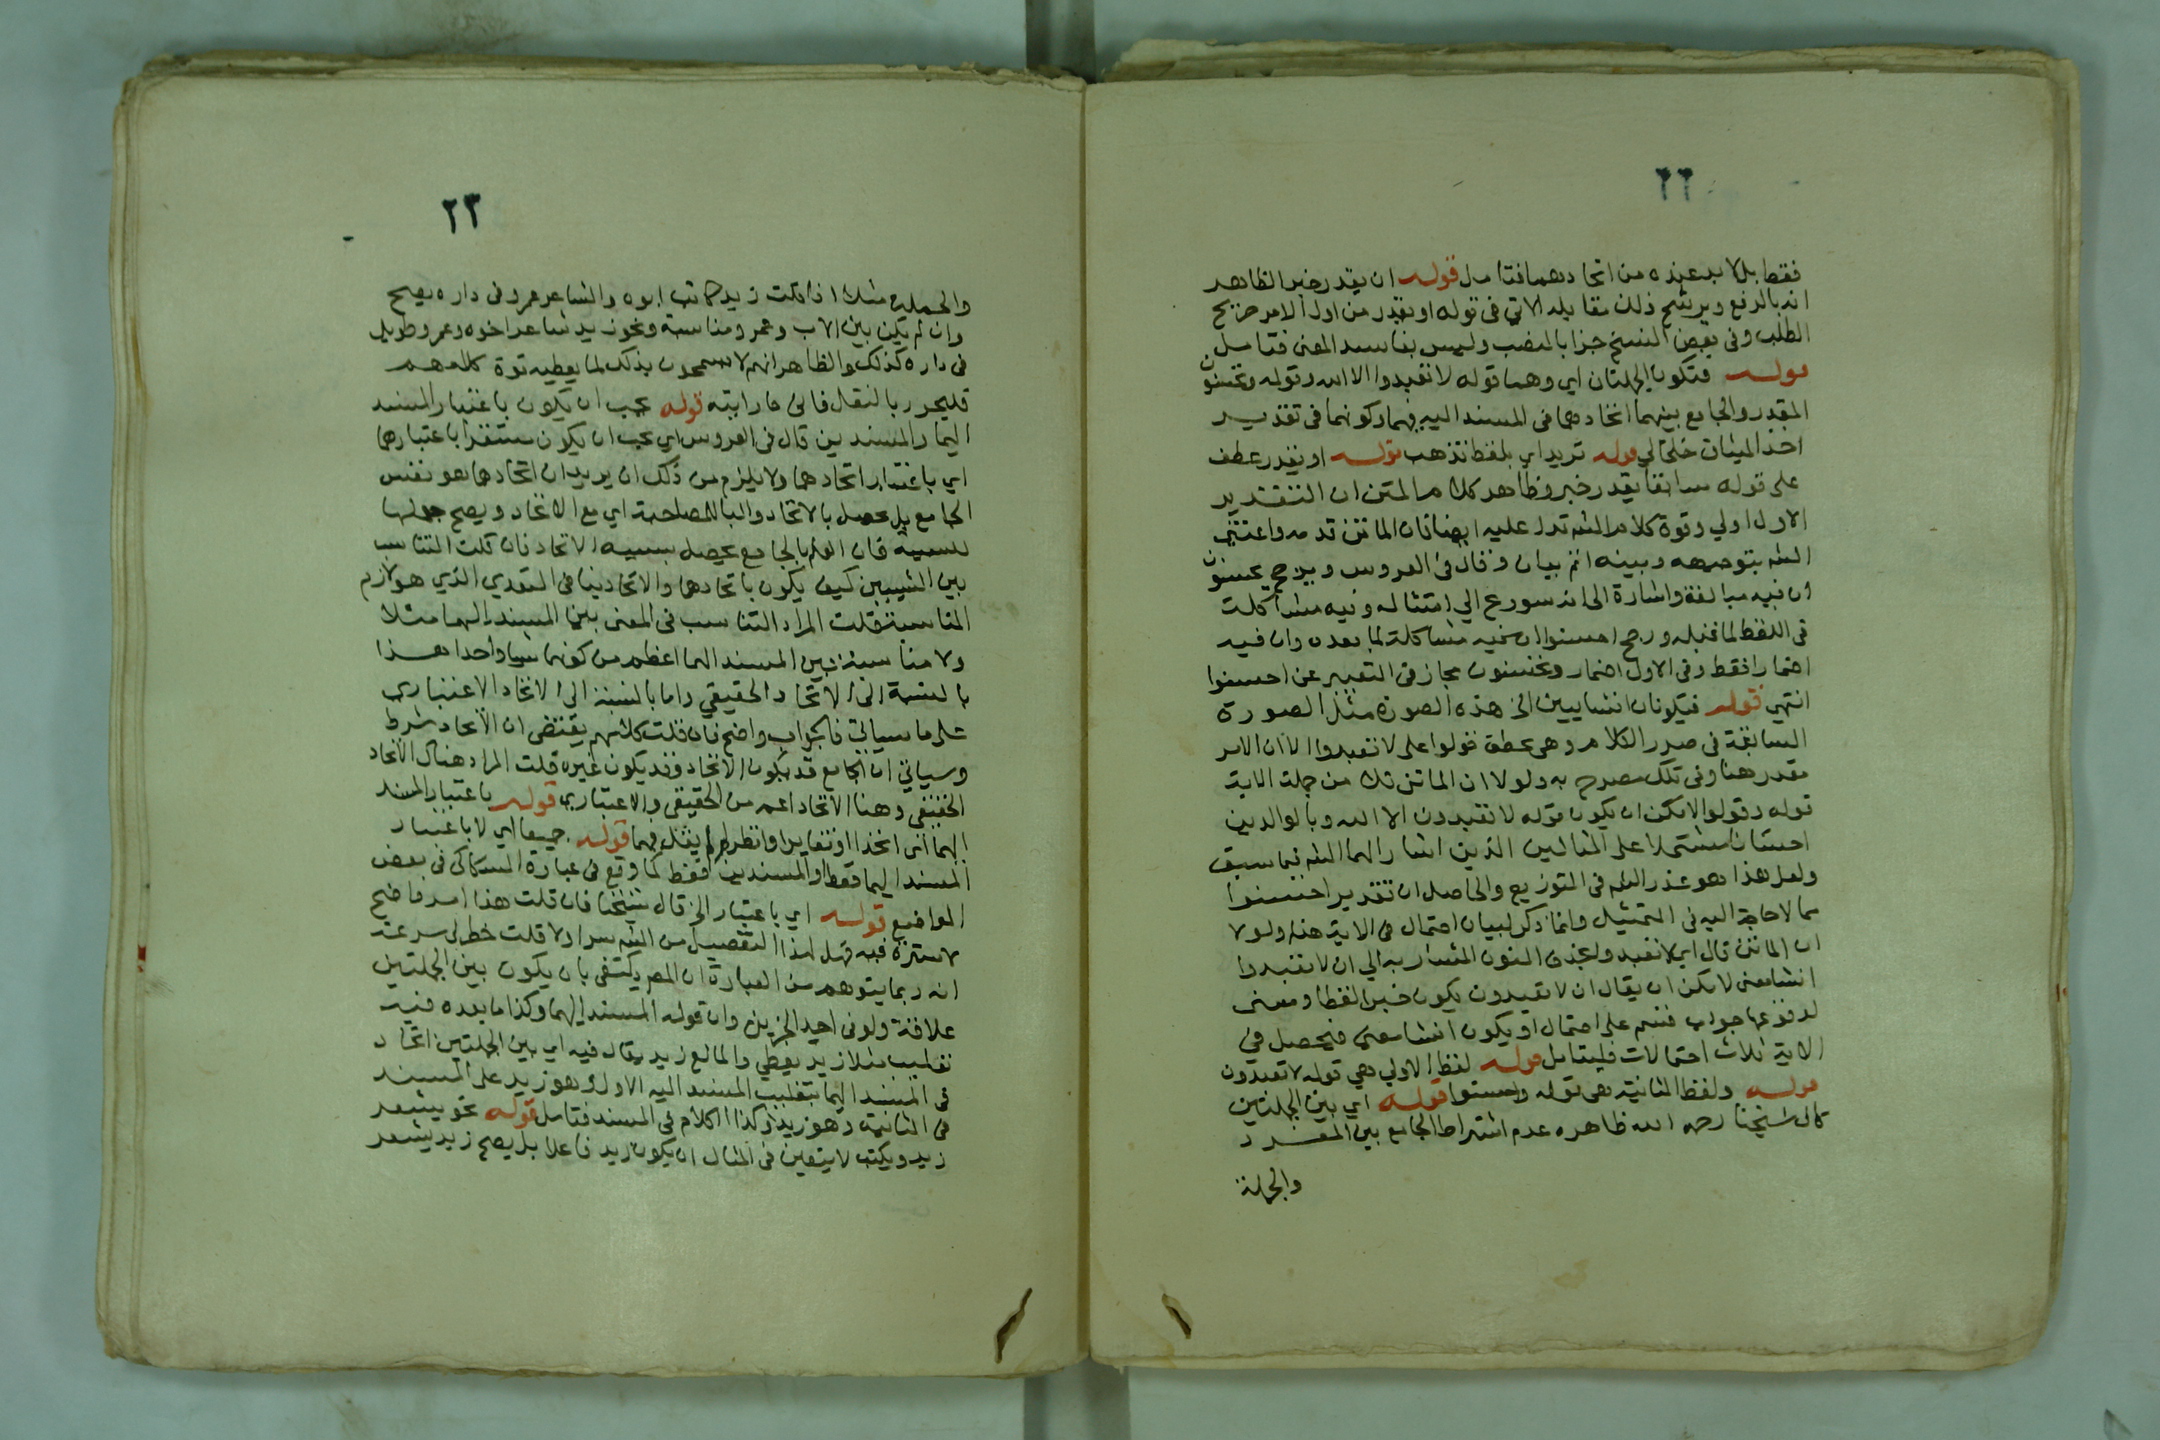 ٢٢
فقط بل لا بد عنده من اتحادهما فتامل قوله ان يقدر خبر الظاهر
انه بالرفع ويرشح ذلك مقابله الاتي في قوله او نقدر من اول الامر صريح
الطلب وفي بعض النسخ جزا بالنصب وليس بفاسد المعنى فتامل
قوله فتكون الجملتان اي وهما قوله لا تعبدوا الا الله وقوله وتحسنون
المقدر والجامع بينهما اتحادهما في المسند اليه فيهما وكونهما في تقدير
اخذ الميثاق قوله تريد اي بلفظ تذهب قوله او نقدر عطف
على قوله سابقا يقدر خبر وظاهر كلام المتن ان التقدير
الاول اولى وقوة كلام الشم تدل عليه ايضا فان الماتن قدمه واعتنى
الشم بتوجيهه وبينه اتم بيان وقال في العروس ويرجح تحسنون
ان فيه مبالغة واشارة الى انه سورع الى امتثاله وفيه مشاكلة
في اللفظ لما قبله ورجح احسنوا ان فيه مشاكلة لما بعده وان فيه
اضمارا فقط وفي الاول اضمار وتحسنون مجاز في التعبير عن احسنوا
انتهى قوله فيكونان انشاييين الخ هذه الصورة مثل الصورة
السابقة في صدر الكلام وهي عطف قولوا على لا تعبدوا الا ان الامر
مقدر هنا وفي تلك مصرح به ولولا ان الماتن من جملة الاية
قوله وقولوا لامكن ان يكون قوله لا تعبدون الا الله وبالوالدين
احسانا مشتملا على المثالين الذين اشار اليهما الشم فيما سبق
ولعل هذا هو عذر الشم في التوزيع والحاصل ان تقدير احسنوا
مما لا حاجة اليه في التمثيل وانما ذكر لبيان احتمال في الاية هذا ولولا
ان الماتن قال اي لا تعبدوا بحذف النون المشار به الى ان لا تعبدوا
انشا معنى لامكن ان يقال ان لا تعبدون يكون خبرا لفظا ومعنى
جواب قسم على احتمال او يكون انشا معنى فيحصل في
الاية ثلاث احتمالات فليتامل قوله لفظ الاولى وهي قوله لا تعبدون
قوله ولفظ الثانية هي قوله واحسنوا قوله اي بين الجملتين
قال شيخنا رحمه الله ظاهره عدم اشتراط الجامع بين المفرد
والجملة
٢٣
والجملة مثلا اذا قلت زيد كاتب ابوه والشاعر عمرو في داره يصح
وان لم يكن بين الاب وعمرو مناسبة ونحو زيد شاعر اخوه وعمرو طويل
في داره كذلك والظاهر انهم لا يسمحون بذلك لما يعطيه قوة كلامهم
فليحرر بالنقل فاني ما رايته قوله يجب ان يكون باعتبار المسند
اليهما والمسندين قال في العروس اي يجب ان يكون مستقرا باعتبارهما
اي باعتبار اتحادهما ولا يلزم من ذلك ان يريد ان اتحادهما هو نفس
الجامع بل يحصل بالاتحاد والبا للمصاحبة اي مع الاتحاد ويصح جعلها
للسببية فان العلم بالجامع يحصل بسببية الاتحاد فان قلت التناسب
بين الشيئين كيف يكون باتحادهما والاتحاد ينافي التعدي الذي هو لازم
المناسبة قلت المراد التناسب في المعنى بين المسند اليهما مثلا
ولا مناسبة بين المسند اليهما اعظم من كونهما شيا واحدا هذا
بالنسبة الى الاتحاد الحقيقي واما بالنسبة الى الاتحاد الاعتباري
على ما سياتي فالجواب واضح فان قلت كلامهم يقتضي ان الاتحاد شرط
وسياتي ان الجامع قد يكون الاتحاد وقد يكون غيره قلت المراد هناك الاتحاد
الحقيقي وهنا الاتحاد اعم من الحقيقي والاعتباري قوله باعتبار المسند
اليهما اي اتحدا او تغايرا وانظر لم لم يقل فيهما قوله جميعا اي لا باعتبار
المسند اليهما فقط او المسندين فقط كما وقع في عبارة السكاكي في بعض
المواضع قوله اي باعتبار الخ قال شيخنا فان قلت هذا امر واضح
لا سترة فيه فهل لهذا التفصيل من الشم سر اولا قلت خطر لي سر عنه
انه ربما يتوهم من العبارة ان المص يكتفي بان يكون بين الجملتين
علاقة ولو في احد الجزين وان قوله المسند اليهما وكذا ما بعده فيه
تغليب مثلا زيد يعطي والمانع زيد يقال فيه اي بين الجملتين اتحاد
في المسند اليهما بتغليب المسند اليه الاول وهو زيد على المسند
في الثانية وهو زيد وكذا الكلام في المسند فتامل قوله نحو يشعر
زيد ويكتب لا يتعين في المثال ان يكون زيد فاعلا بل يصح زيد يشعر